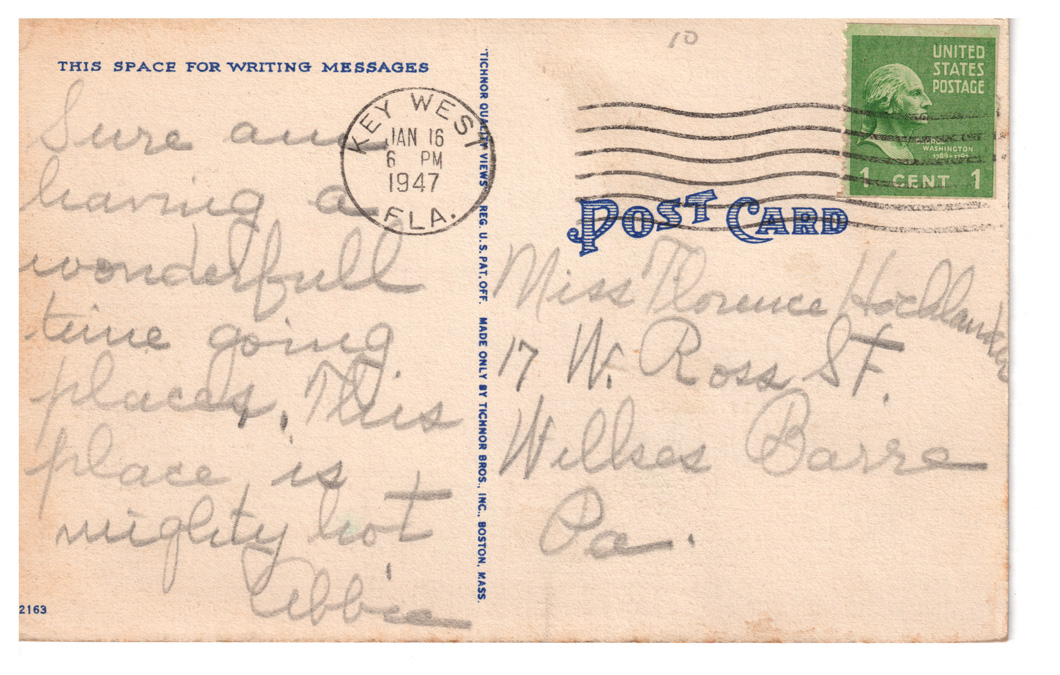 THIS SPACE FOR WRITING MESSAGES
Sure am
having a
wonderfull
time going
places. This
place is
mighty hot
Libbie
2163
KEY WEST
JAN 16
6 PM
1947
FLA.
"TICHNOR QUALITY VIEWS" REG. U. S. PAT. OFF. MADE ONLY BY TICHNOR BROS., INC., BOSTON, MASS.
10
UNITED
STATES
POSTAGE
GEORGE
WASHINGTON
1789-1797
1 CENT 1
POST CARD
Miss Florence Hochlander
17 W. Ross St.
Willses Barre
Pa.